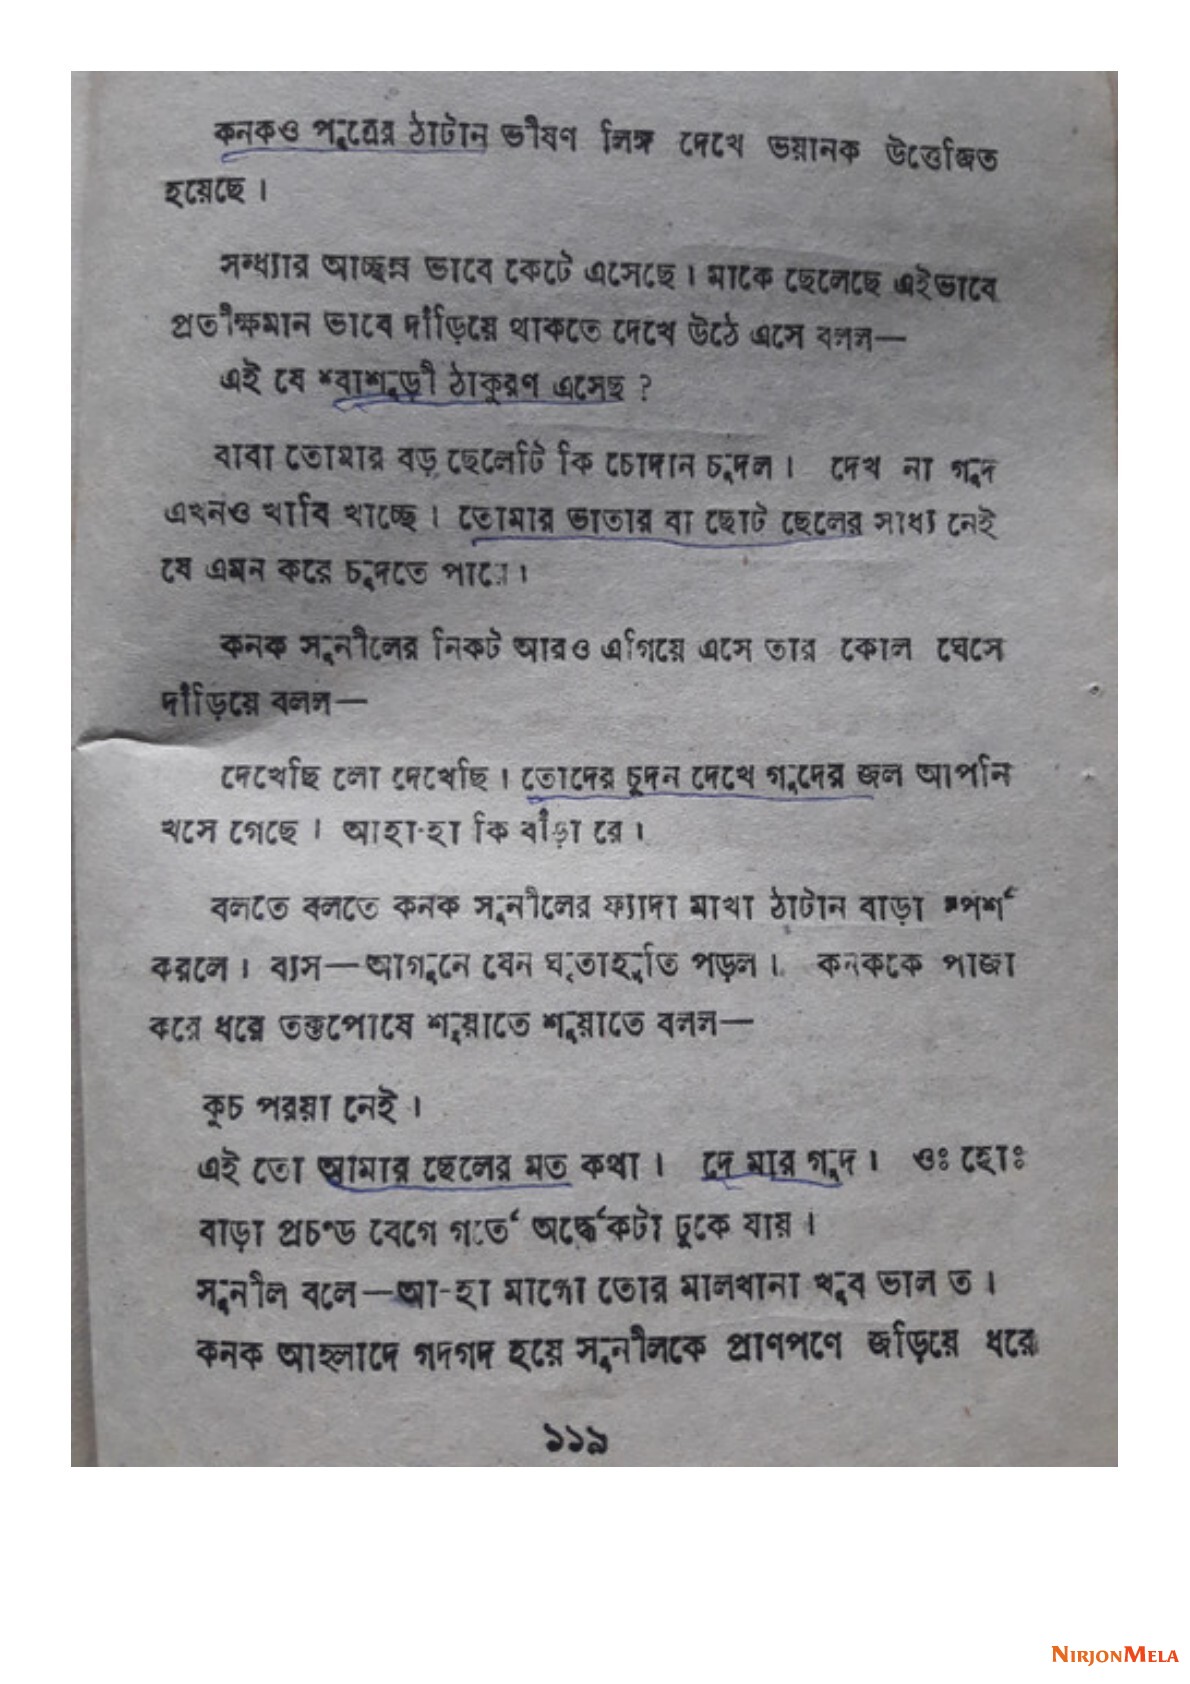 কনকও পুত্রের ঠাটান ভীষণ লিঙ্গ দেখে ভয়ানক উত্তেজিত
হয়েছে।
সন্ধ্যার আচ্ছন্ন ভাবে কেটে এসেছে। মাকে ছেলেছে এইভাবে
প্রতীক্ষমান ভাবে দাঁড়িয়ে থাকতে দেখে উঠে এসে বলল—
এই যে শ্বাশুড়ী ঠাকুরণ এসেছ ?
বাবা তোমার বড় ছেলেটি কি চোদান চুদল। দেখ না গুদ
এখনও খাবি খাচ্ছে। তোমার ভাতার বা ছোট ছেলের সাধ্য নেই
যে এমন করে চুদতে পারে।
কনক সুনীলের নিকট আরও এগিয়ে এসে তার কোল ঘেসে
দাঁড়িয়ে বলল—
দেখেছি লো দেখেছি। তোদের চুদন দেখে গুদের জল আপনি
খসে গেছে। আহা-হা কি বাঁড়া রে।
বলতে বলতে কনক সুনীলের ফ্যাদা মাখা ঠাটান বাড়া স্পর্শ
করলে। ব্যস—আগুনে যেন ঘৃতাহুতি পড়ল। কনককে পাজা
করে ধরে তক্তপোষে শুয়াতে শুয়াতে বলল—
কুচ পরয়া নেই।
এই তো আমার ছেলের মত কথা। দে মার গুদ। ওঃ হোঃ
বাড়া প্রচণ্ড বেগে গর্তে অর্দ্ধেকটা ঢুকে যায়।
সুনীল বলে—আ-হা মাগো তোর মালখানা খুব ভাল ত।
কনক আহ্লাদে গদগদ হয়ে সুনীলকে প্রাণপণে জড়িয়ে ধরে
১১৯
NIRJONMELA